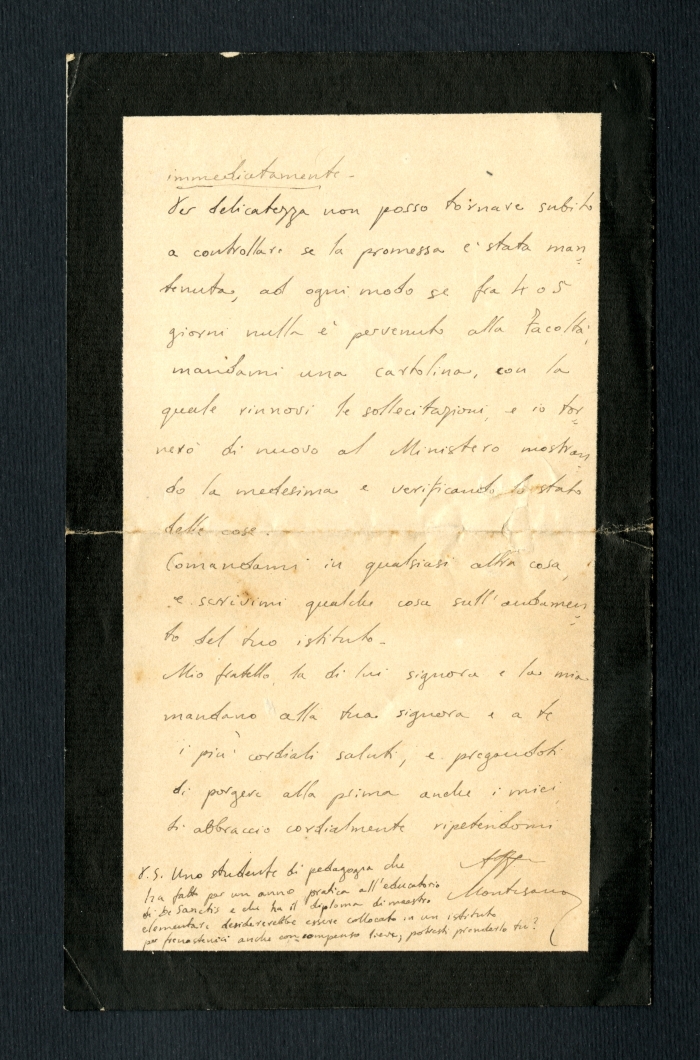 immediatamente.
Per delicatezza non posso tornare subito
a controllare se la promessa è stata man=
tenuta, ad ogni modo se fra 4 o 5
giorni nulla è pervenuto alla Facoltà,
mandami una cartolina, con la
quale rinnovi le sollecitazioni, e io tor=
nerò di nuovo al Ministero mostran=
do la medesima e verificando lo stato
delle cose.
Comandami in qualsiasi altra cosa,
e scrivimi qualche cosa sull'andamen=
to del tuo istituto.
Mio fratello, la di lui signora e la mia
mandano alla tua signora e a te
i più cordiali saluti, e pregandoti
di porgere alla prima anche i miei
ti abbraccio cordialmente ripetendomi
Aff
Montesano
P.S. Uno studente di pedagogia che
ha fatto per un anno pratica all'educatorio
di De Sanctis e che ha il diploma di maestro
elementare desidererebbe essere collocato in un istituto
per frenastenici anche con compenso lieve; potresti prenderlo tu?